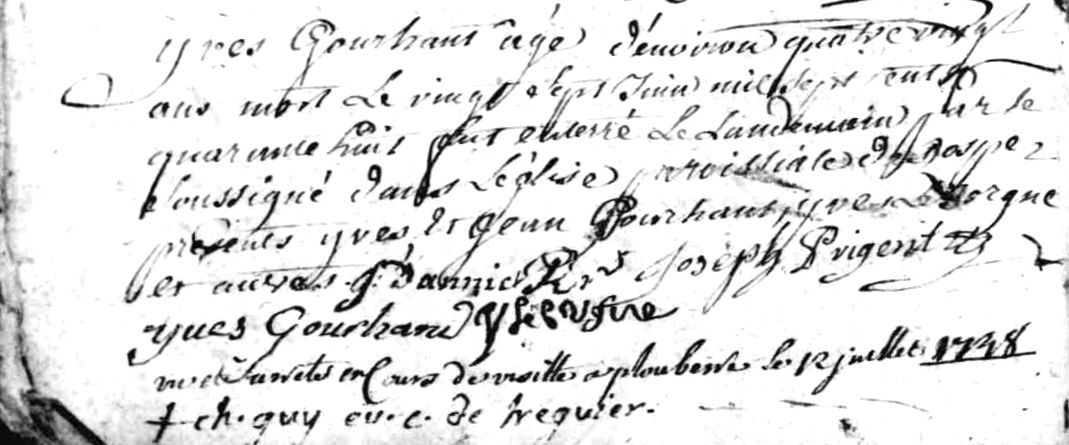 yves Gourhant âgé d'environ quatre vingt
ans mort Le vingt sept Juin mil sept cents
quarante huit fut enterré Le Landemain par le
soussigné dans L'église paroissiale de Rospez
présents yves et Jean Gourhant, yves Le Borgne
et autres. g. Dannic Joseph Prigent
yves Gourhant
vu et arreté en Cours de visitte a plouberre le 12 juillet 1748
+ ch. guy ev. c. de treguier.